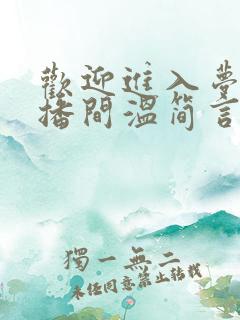 歡迎進入夢
播間溫簡言
獨一無二
未任同意禁止轉載